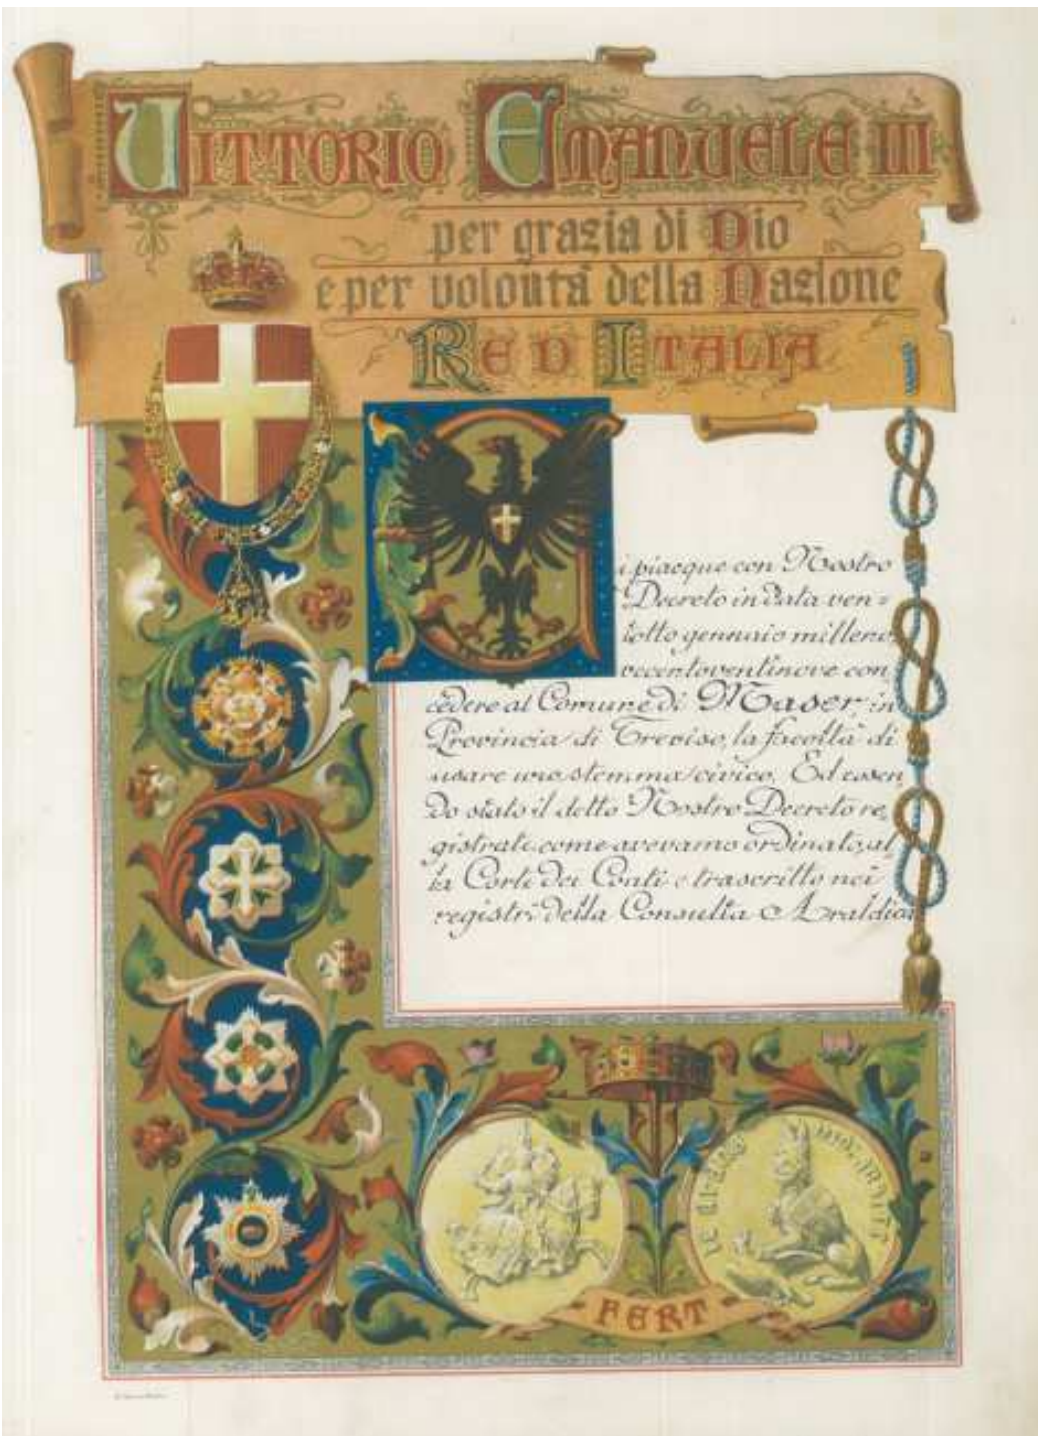 VITTORIO EMANUELE III
per grazia di Dio
e per volontà della Nazione
RE D ITALIA
Ci piacque con Nostro
Decreto in data ven=
totto gennaio milleno
vecentoventinove con
cedere al Comune di Maser, in
Provincia di Treviso, la facoltà di
usare uno stemma civico. Ed essen
do stato il detto Nostro Decreto re,
gistrato, come avevamo ordinato, al
la Corte dei Conti e trascritto nei
registri della Consulta Araldica
FERT